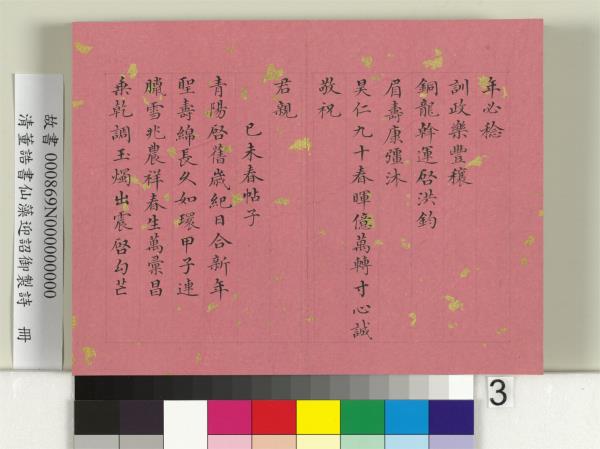 年必稔
訓政樂豐穰
銅龍斡運啓洪鈞
眉壽康彊沐
昊仁九十春暉億萬轉寸心誠
敬祝
君親
己未春帖子
青陽啓舊歲紀日合新年
聖壽綿長久如環甲子連
臘雪兆農祥春生萬彙昌
乘乾調玉燭出震啓勾芒
故書 000869N000000000
清董誥書仙藻迎韶御製詩 冊
3